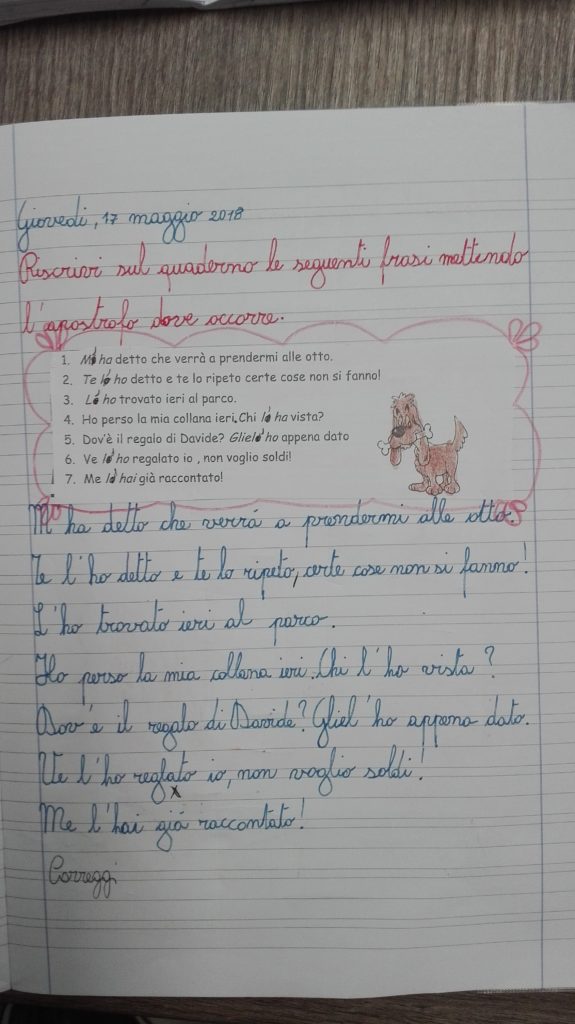 Giovedì, 17 maggio 2018
Riscrivi sul quaderno le seguenti frasi mettendo
l'apostrofo dove occorre.
1. M' ha detto che verrà a prendermi alle otto.
2. Te l' ho detto e te lo ripeto certe cose non si fanno!
3. L' ho trovato ieri al parco.
4. Ho perso la mia collana ieri. Chi l' ha vista?
5. Dov'è il regalo di Davide? Gliel' ho appena dato
6. Ve l' ho regalato io , non voglio soldi!
7. Me l' hai già raccontato!
M' ha detto che verrá a prendermi alle otto.
Te l'ho detto e te lo ripeto, certe cose non si fanno!
L'ho trovato ieri al parco.
Ho perso la mia collana ieri. Chi l'ho vista?
Dov'é il regalo di Davide? Gliel'ho appena dato.
Ve l'ho reglato io, non voglio soldi!
x
Me l'hai giá raccontato!
Correggi